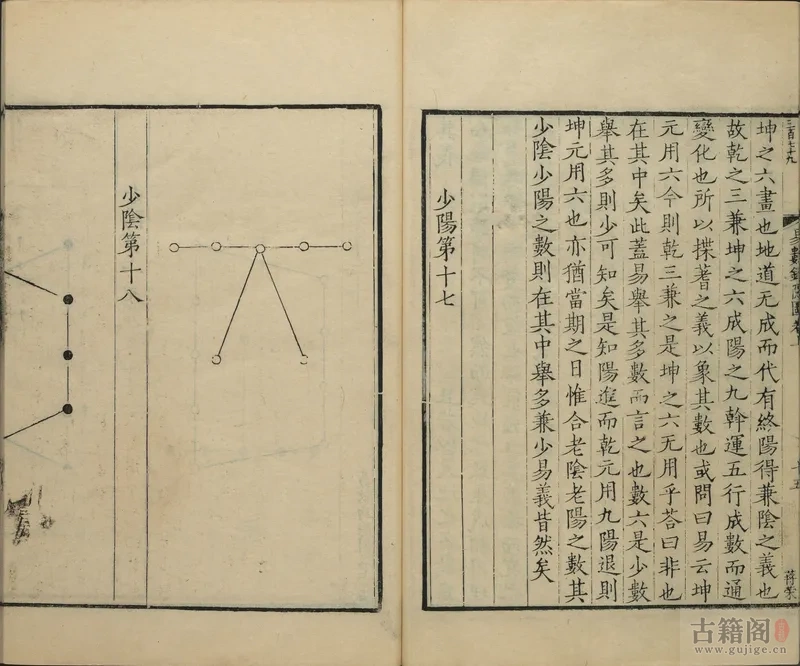 坤之六畫也地道无成而代有終陽得兼陰之義也
故乾之三兼坤之六成陽之九幹運五行成數而通
變化也所以揲蓍之義以象其數也或問曰易云坤
元用六今則乾三兼之是坤之六无用乎荅曰非也
在其中矣此蓋易舉其多數而言之也數六是少數
舉其多則少可知矣是知陽進而乾元用九陽退則
坤元用六也亦猶當期之日惟合老陰老陽之數其
少陰少陽之數則在其中舉多兼少易義皆然矣
少陽第十七
少陰第十八
三百七十九
古籍阁
www.gujige.cn